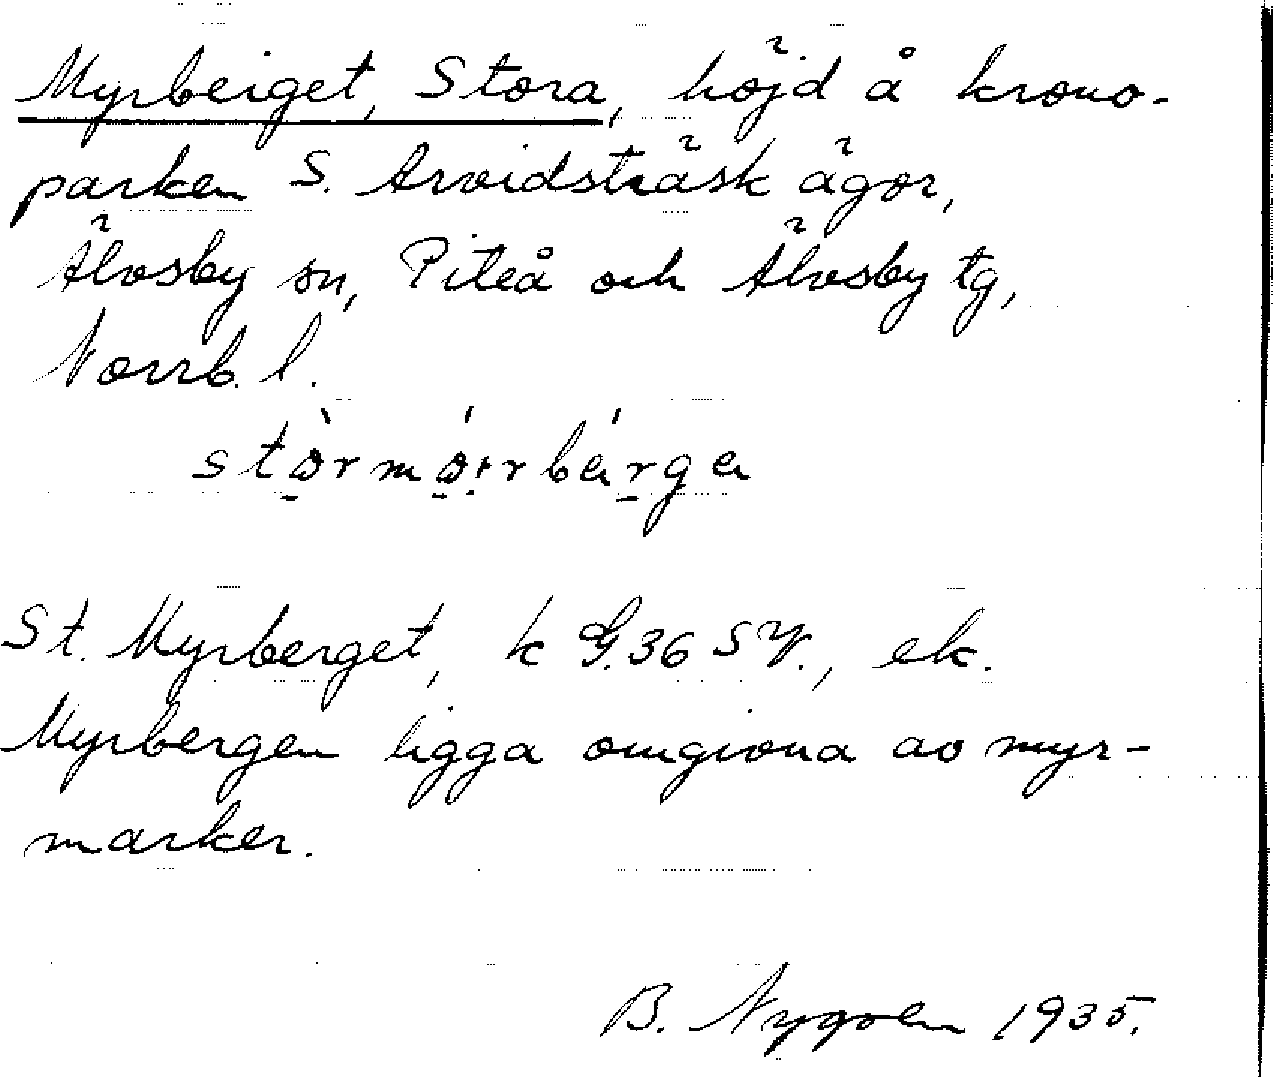 Myrberget, Stora, höjd å krono-
parken S. Arvidsträsk ägor,
Älvsby sn, Piteå och Älvsby tg,
Norrb. l.
St. Myrberget, k G.36 SV., ek.
Myrbergen ligga omgivna av myr-
marker.
B. Nygren 1935.